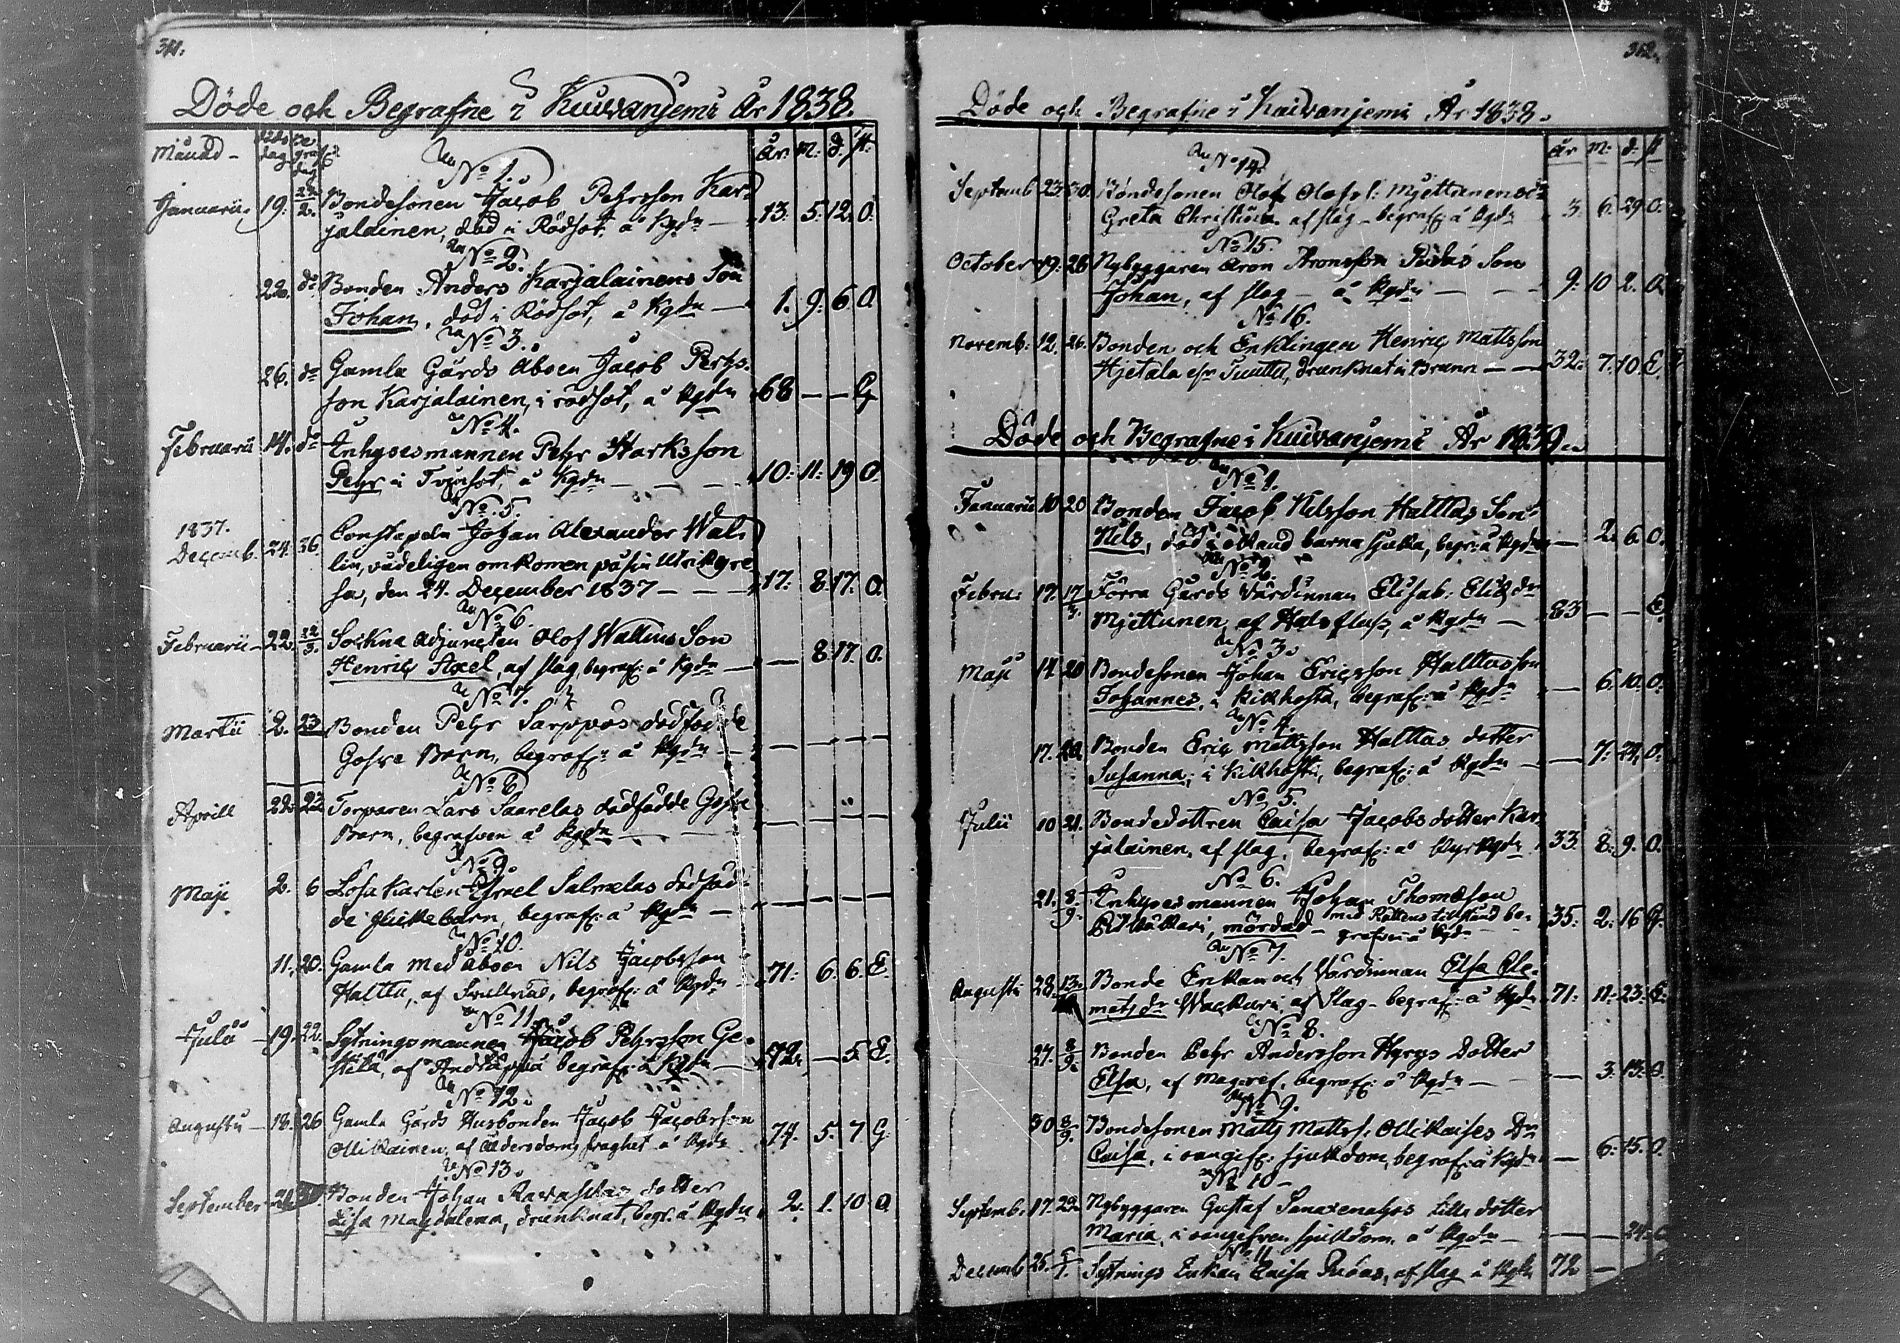 311.
Döde och Begrafne i Kuivaniemi År 1838.
Månad
Är. M. d. St.
No 1.
Januarii 19. 22/2. Bondesonen Jacob Pehrsson Kar-
jalainen, död i Rödsot, å Kgdn — 13. 5. 12. O.
No 2.
22. do Bonden Anders Karjalainens Son
Johan, död i Rödsot, å Kgdn — 1. 9. 6. O.
No 3.
26. do Gamla Gårds Aboen Jacob Pehrs-
son Karjalainen, i rödsot, å Kgdn 68 — — G.
No 4.
Februarii 14. do Inhysesmannen Pehr Starksson
Pehr i Tvinsot, å Kgdn — — 10. 11. 19 O.
No 5.
1837.
Decemb. 24. 26 Constapeln Johan Alexander Wal-
lin, vådeligen omkommen på sin Utrikes re-
sa, den 24. December 1837 — — 17. 8. 17. O.
No 6.
Februarii 22. 22/3. Sockne Adjuncten Olof Wallins Son
Henric Axel, af slag, begraf: å Kgdn — — 8. 17. O.
No 7.
Martii 2. 23 Bonden Pehr Sarppas dödfödde
Gosse Barn, begraf: å Kgdn — — — —
No 8.
Aprill 22. 22 Torparen Lars Saarelas dödfödde Gosse
Barn, begrafven å Kgdn — — — —
No 9.
Maji 2. 6 Loskarlen Israel Salmelas dödföd-
de flickebarn, begraf: å Kgdn — — — —
No 10.
11. 20. Gamla Med Åboen Nils Jacobsson
Halttu, af Svullnad, begraf: å Kgdn 71. 6. 6. E.
No 11.
Julii 19. 22. Sytningsmannen Jacob Pehrsson Ge-
stilä, af Andtäppa begraf: å Kgdn — 72. — 5. E.
No 12.
Augusti 18. 26 Gamla Gårds Husbonden Jacob Jacobsson
Ollikainen, af Ålderdoms svaghet å Kgdn 74. 5. 7 G.
No 13.
September Bonden Johan dotter
Lisa Magdalena, drunknat, begr. å Kgdn 2. 1. 10 O.
312.
Döde och Begrafne i Kuivaniemi År 1838.
År M. d. St
No 14.
Septemb. 23. 30. Bondesonen Olof Olofs: Mjettunens dr
Greta Christina af slag — begraf: å Kgdn 3. 6. 29 O.
No 15.
October 19. 28 Nybyggaren Aron Aronsson Pudas Son
Johan, af slag — å Kgdn — — 9. 10 2. O.
No 16.
Novemb. 12. 26. Bonden och Enklingen Henric Mattsson
Hjetala efr Tuuttu, drunknat i Brunn — 32. 7. 10. E.
Döde och Begrafne i Kuivaniemi År 1839.
No 1.
Januarii 10 20 Bonden Jacob Nilsson Halttas Son
Nils, död i okänd barnasjuka, begr: å Kgdn — 2. 6. O.
No 2.
Febru. 17. 17/3. Förra Gårds Värdinnan Elisab: Elis dr
Mjettunen, af Halsfluss, å Kgdn — 83 — — E.
No 3.
Maji 14 20 Bondesonen Johan Ericsson Halttas son
Johannes, i Kikhosta, begraf: å Kgdn — 6. 10. O.
No 4.
17. 20. Bonden Eric Mattsson Halttas dotter
Susanna, i Kikhosta, begraf: å Kgdn — 7. 24. O.
No 5.
Julii 10 21. Bondedottren Caisa Jacobs dotter Kar-
jalainen, af slag, begraf: å Kyrkgdn 33. 8. 9. O.
No 6.
21. 8/9. Inhysesmannen Johan Thomæson
mördad — med Rättens tillstånd be-
grafven å Kgdn — 35. 2. 16 G.
No 7.
Augusti 28. Bonde Enkan och Värdinnan Elsa Cle-
mets dr Wackuri, af Slag — begraf: å Kgdn 71. 11. 23. E.
No 8.
27. 8/9. Bonden Pehr Andersson Hyrys Dotter
Elsa, af Magref, begraf: å Kgdn — — 3. 13. O.
No 9.
30 8/9. Bondesonen Matts Matts: Ollikaises Dr
Caisa, i oangif: sjukdom, begraf: å Kgdn — 6. 15. O.
No 10
Septemb. 17. 22. Nybyggaren Gustaf lilla dotter
Maria, i oangifven sjukdom å Kgdn — — — 24. O
No 11
Decemb 25. 5/1. Sytnings Enkan Caisa Pudas, af slag å Kgdn 72 —